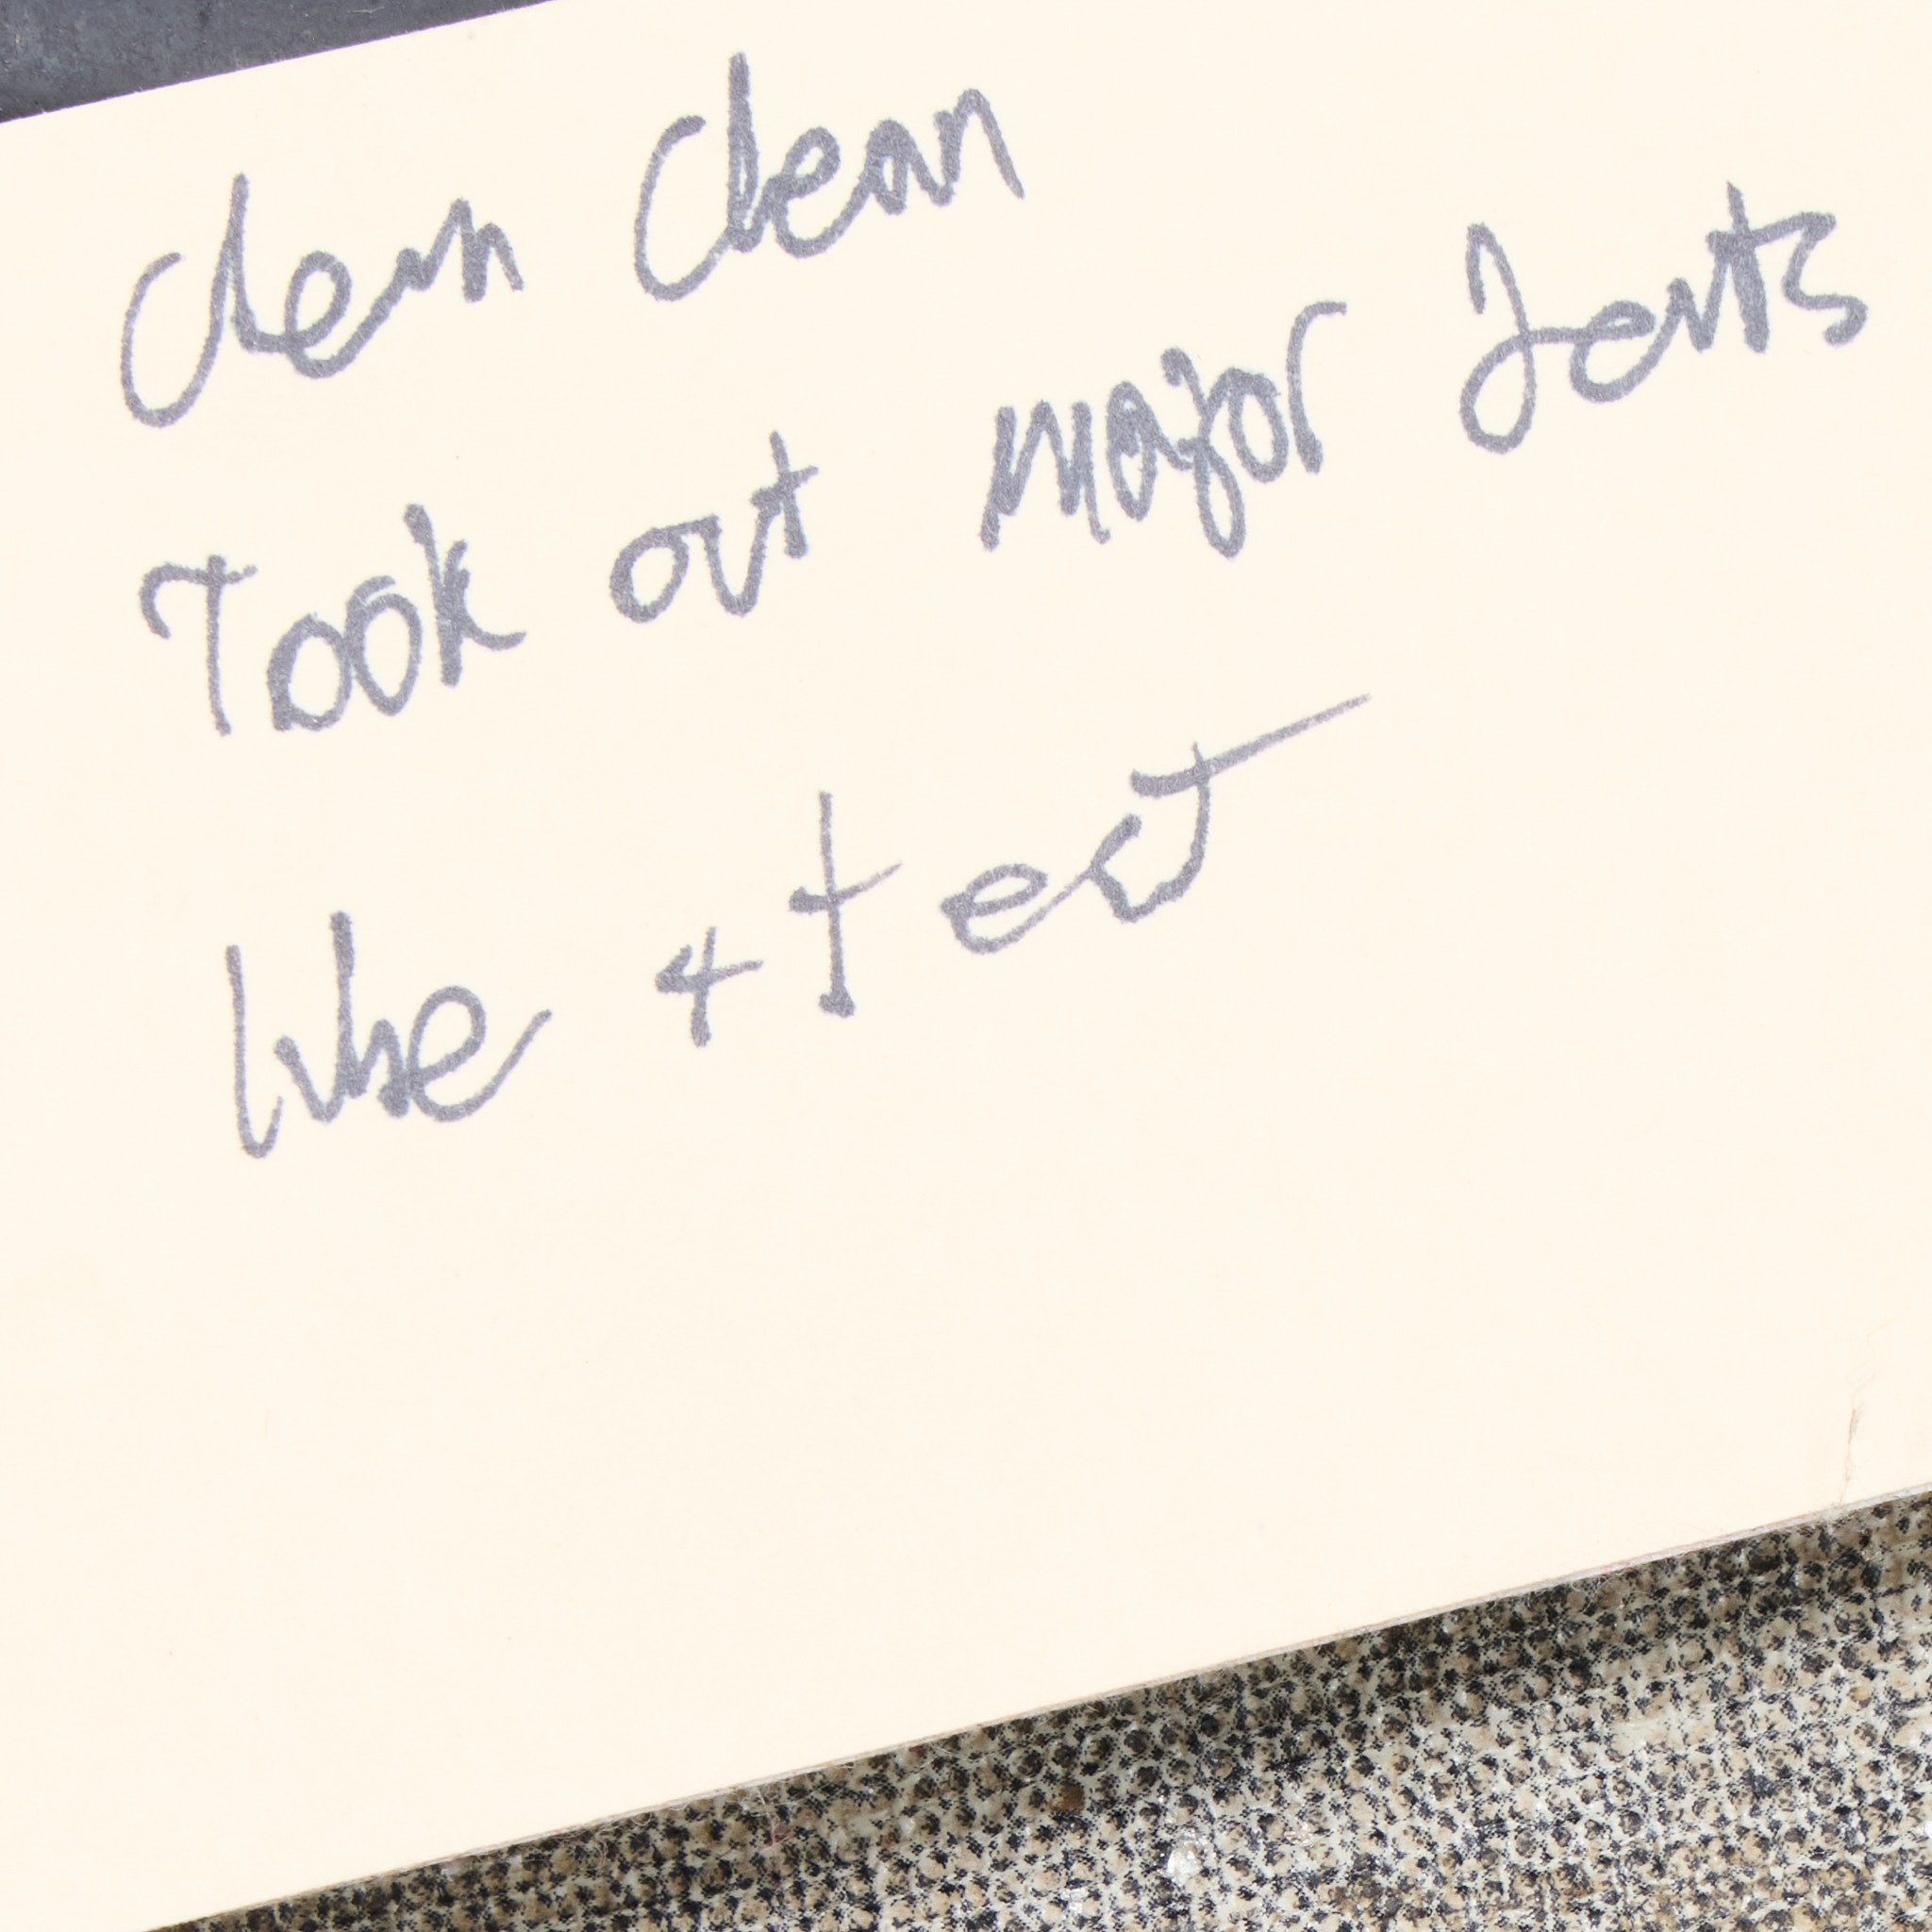 Clean Clean
Took out major Dents
Use + test